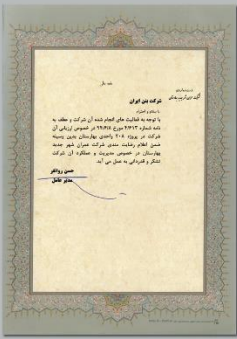 شرکت بتن ایران
با سلام و احترام
با توجه به فعالیت های انجام شده آن شرکت و عطف به
نامه شماره ۴/۳۱۳ مورخ در خصوص ارزیابی آن
شرکت در پروژه ۲۰۸ واحدی بهارستان بدین وسیله
ضمن اعلام رضایت مندی شرکت عمران شهر جدید
بهارستان در خصوص مدیریت و عملکرد آن شرکت
تشکر و قدردانی به عمل می آید.
حسن روانفر
مدیر عامل